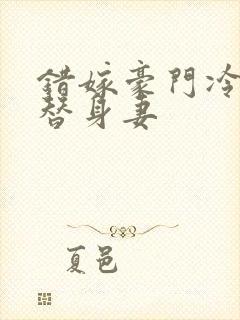 錯嫁豪門冷
替身妻
夏邑